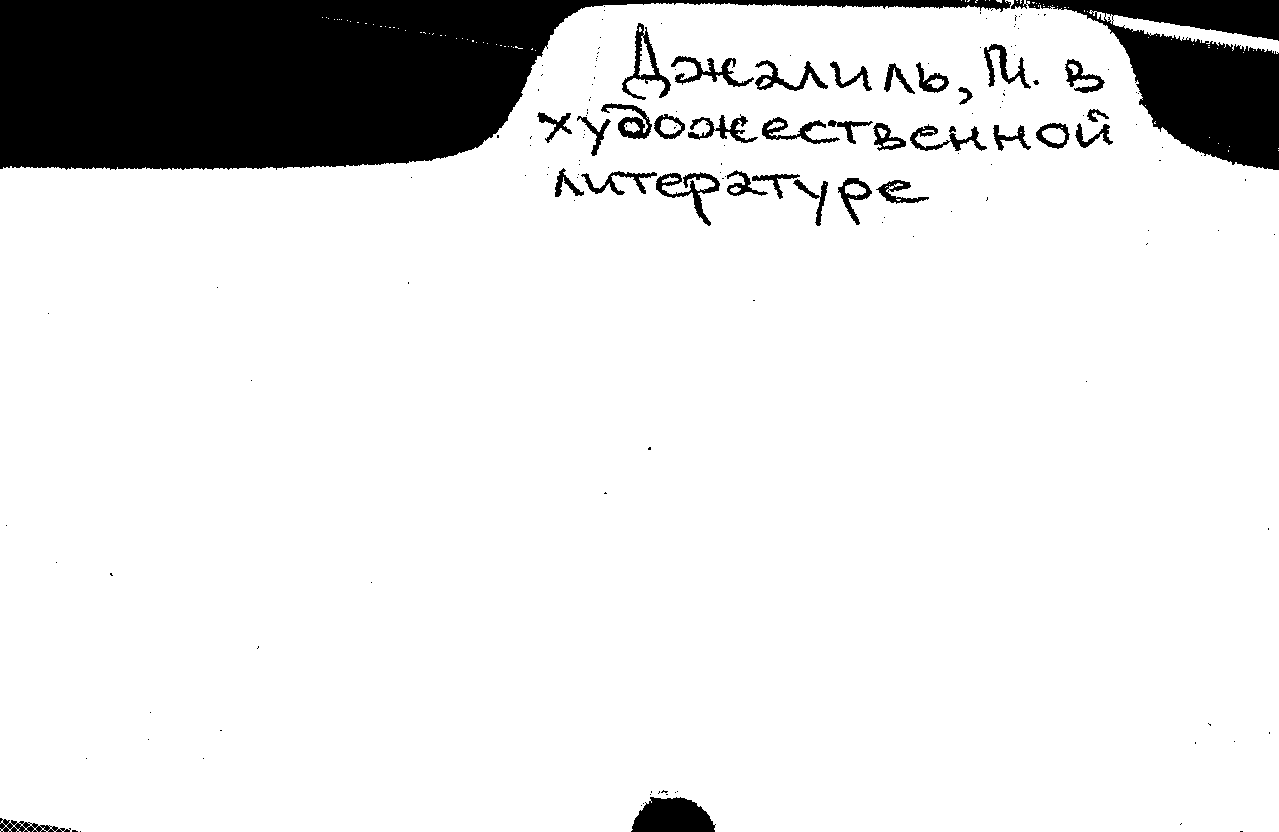 Джалиль, М. в
художественной
литературе